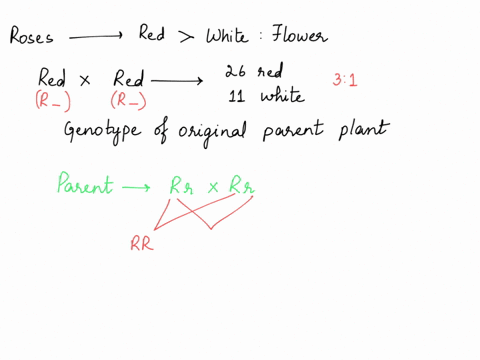 Roses ⟶ Red > White : Flower
Red × Red ⟶ 26 red 3:1
(R_) (R_) 11 white
Genotype of original parent plant
Parent ⟶ Rr × Rr
RR